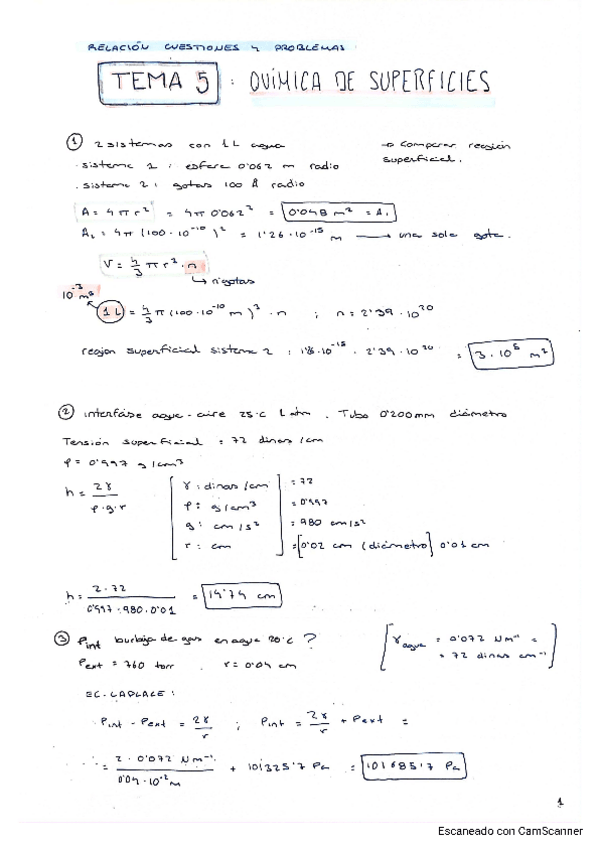 RELACIÓN CUESTIONES Y PROBLEMAS
TEMA 5 : QUÍMICA DE SUPERFICIES
① 2 sistemas con 1 L agua → comparar región superficial.
· sistema 1 : esfera 0'062 m radio
· sistema 2 : gotas 100 Å radio
A = 4πr² = 4π 0'062² = 0'048 m² = A₁
A₂ = 4π (100·10⁻¹⁰)² = 1'26·10⁻¹⁵ m → una sola gota.
V = 4/3 πr³·n
↳ nº gotas
10⁻³ m³
1 L = 4/3 π (100·10⁻¹⁰ m)³ · n ; n = 2'39·10²⁰
región superficial sistema 2 : 1'26·10⁻¹⁵ · 2'39·10²⁰ = 3·10⁵ m²
② interfase agua-aire 25°C 1 atm . Tubo 0'200mm diámetro
Tensión superficial = 72 dinas/cm
ρ = 0'997 g/cm³
h = 2γ / ρ·g·r
γ : dinas/cm = 72
ρ : g/cm³ = 0'997
g : cm/s² = 980 cm/s²
r : cm = [0'02 cm (diámetro] 0'01 cm
h = 2·72 / 0'997·980·0'01 = 14'74 cm
③ Pint burbuja de gas en agua 20°C ? [γ agua = 0'072 Nm⁻¹ =
= 72 dinas cm⁻¹]
Pext = 760 torr . r = 0'04 cm
EC. LAPLACE :
· Pint - Pext = 2γ / r ; Pint = 2γ / r + Pext =
= 2·0'072 Nm⁻¹ / 0'04·10⁻² m + 101325'7 Pa = 101685'7 Pa
1
Escaneado con CamScanner